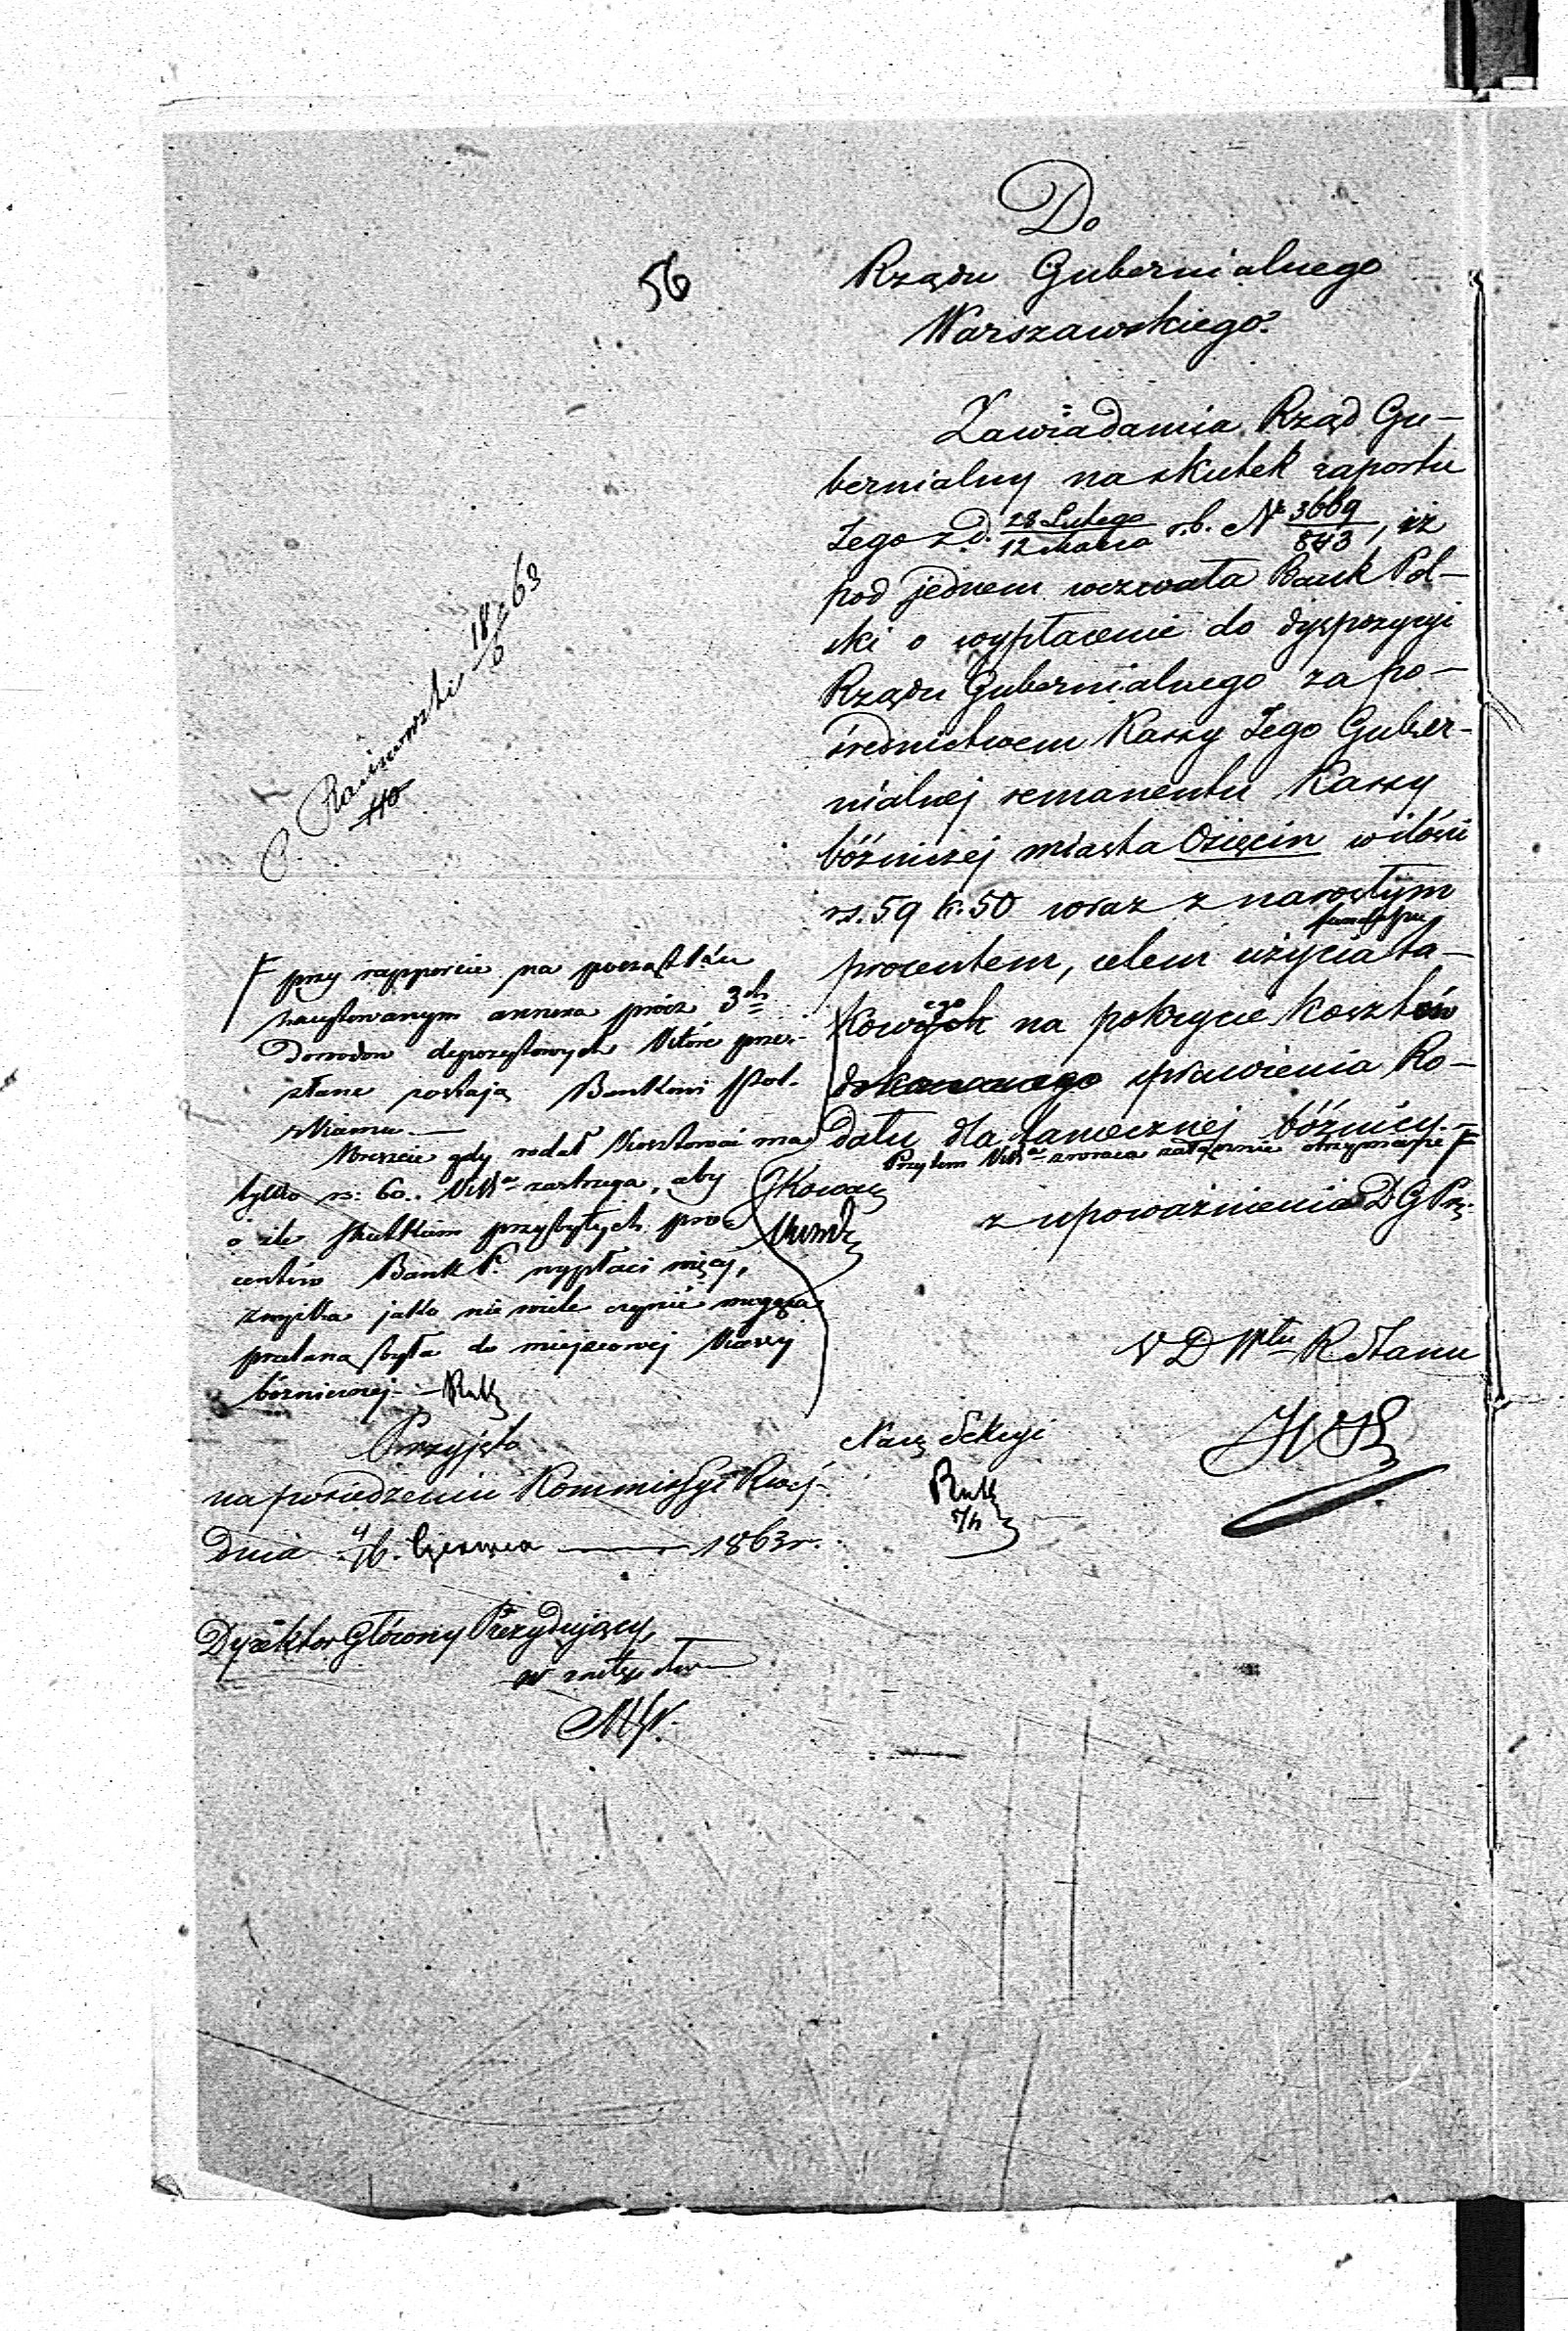 56
Do
Rządu Gubernialnego
Warszawskiego.
Zawiadamia Rząd Gu-
bernialny na skutek raportu
Jego z d. 28 Lutego / 12 Marca r.b. N 3669 / 843, iż
pod jednem wezwała Bank Pol-
ski o wypłacenie do dyspozycyi
Rządu Gubernialnego za po-
średnictwem Kassy Jego Guber-
nialnej remanentu Kassy
bóźniczej miasta Osięcin w ilości
rs. 59 k. 50 wraz z narosłym
procentem, celem użycia ta-
kowego na pokrycie kosztów
sprawienia Ro-
dału dla tamecznej bóźnicy.
Przytem zwraca załączenie otrzymane F
z upoważnienia D G Pr.
F przy rapporcie na początku
zacytowanym annexa prócz 3ch
Dowodów depozytowych które prze-
słane zostają Bankowi Pol-
skiemu.
Wreszcie gdy rodał kosztować ma
tylko rs: 60. zastrzega, aby
o ile skutkiem przybyłych pro-
centów Bank P. wypłaci więcej,
zwyżka jako nie wiele czynić mogąca
przelana była do miejscowej Kassy
bóźniczej.
V D R Stanu
Nacz Sekcyi
Przyjęto
na posiedzeniu Kommissyi Rząd.
dnia 4/16 Czerwca 1863 r.
Dyrektor Główny Prezydujący,
w zastęp
18/6 63